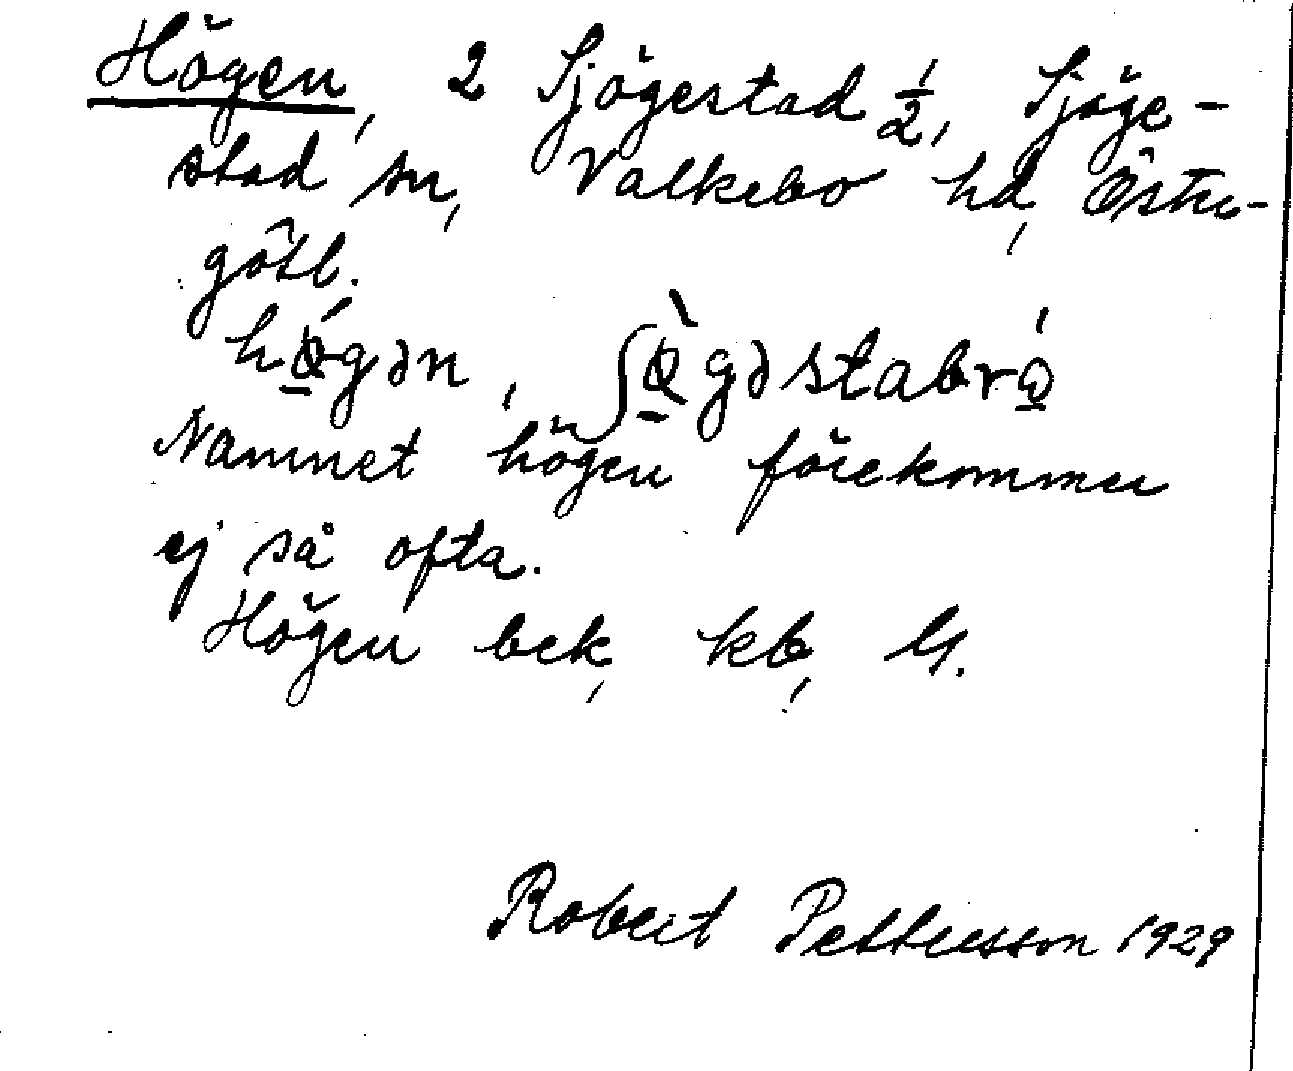 Högen, 2 Sjögestad 1/2, Sjöge-
stad sn, Valkebo hd, Östra-
götl.
hǿ̱gən, ʃø̱̀gəstabrǫ́
Namnet högen förekommer
ej så ofta.
Högen bek, kb, ls.
Robert Pettersson 1929